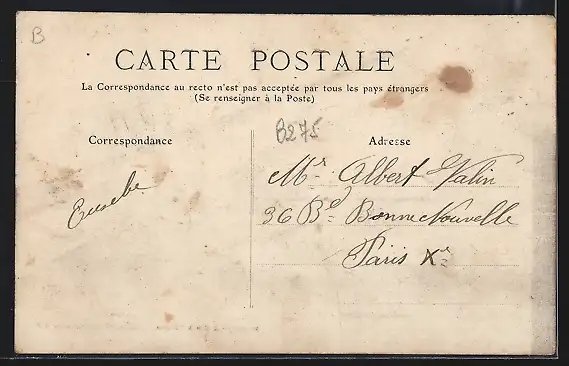 B
CARTE POSTALE
La Correspondance au recto n'est pas acceptée par tous les pays étrangers
(Se renseigner à la Poste)
B275
Correspondance
Adresse
Eusebe
Mr. Albert Valin
36 Bd Bonne Nouvelle
Paris Xe